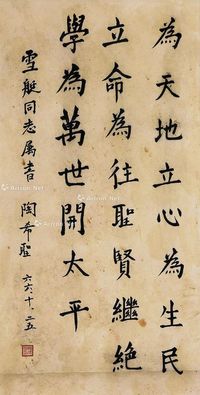 為天地立心為生民
立命為往聖賢繼絶
學為萬世開太平
雪艇同志属書
陶希聖
六六、十、二五